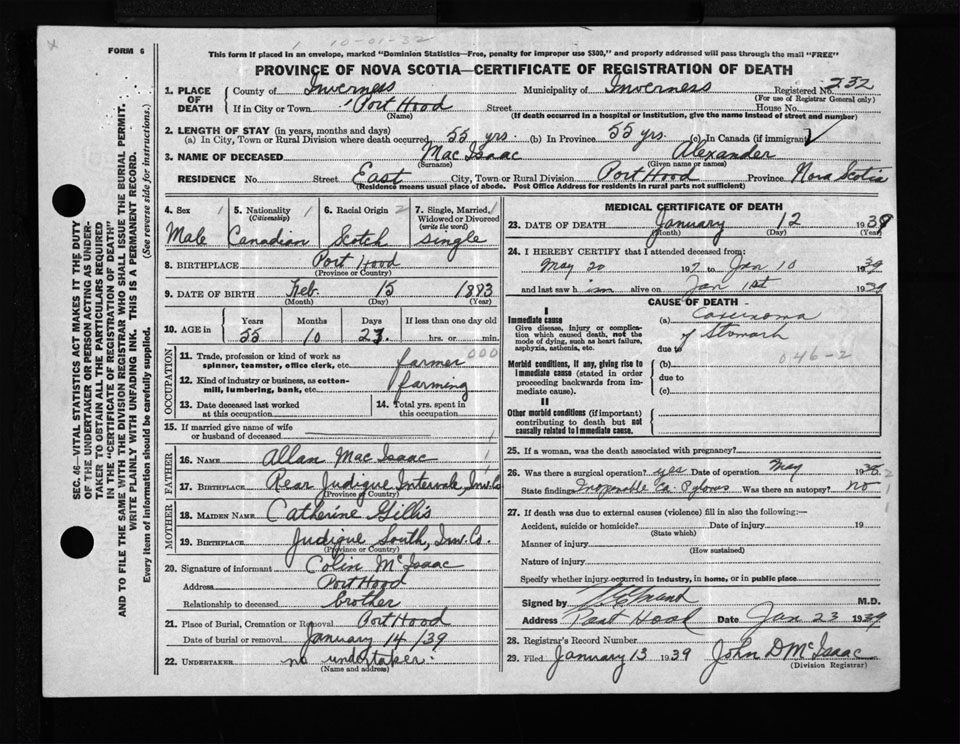 10-01-32
FORM 6
This form if placed in an envelope, marked "Dominion Statistics—Free, penalty for improper use $300," and properly addressed will pass through the mail "FREE"
PROVINCE OF NOVA SCOTIA—CERTIFICATE OF REGISTRATION OF DEATH
SEC. 46—VITAL STATISTICS ACT MAKES IT THE DUTY
OF THE UNDERTAKER OR PERSON ACTING AS UNDER-
TAKER TO OBTAIN ALL THE PARTICULARS REQUIRED
IN THE "CERTIFICATE OF REGISTRATION OF DEATH"
AND TO FILE THE SAME WITH THE DIVISION REGISTRAR WHO SHALL ISSUE THE BURIAL PERMIT.
WRITE PLAINLY WITH UNFADING INK. THIS IS A PERMANENT RECORD.
Every item of information should be carefully supplied. (See reverse side for instructions.)
1. PLACE OF DEATH County of Inverness Municipality of Inverness Registered No. 232
(For use of Registrar General only)
If in City or Town Port Hood Street House No.
(Name) (If death occurred in a hospital or institution, give the name instead of street and number)
2. LENGTH OF STAY (in years, months and days)
(a) In City, Town or Rural Division where death occurred 55 yrs. (b) In Province 55 yrs. (c) In Canada (if immigrant)
3. NAME OF DECEASED Mac Isaac Alexander
(Surname) (Given name or names)
RESIDENCE No. Street East City, Town or Rural Division Port Hood Province Nova Scotia
(Residence means usual place of abode. Post Office Address for residents in rural parts not sufficient)
4. Sex 1 5. Nationality 1 6. Racial Origin 2 7. Single, Married, 1
(Citizenship) Widowed or Divorced
(write the word)
Male Canadian Scotch Single
8. BIRTHPLACE Port Hood
(Province or Country)
9. DATE OF BIRTH Feb. 15 1883
(Month) (Day) (Year)
10. AGE in Years Months Days If less than one day old
55 10 27. hrs. or min.
OCCUPATION
11. Trade, profession or kind of work as
spinner, teamster, office clerk, etc. farmer 000
12. Kind of industry or business, as cotton-
mill, lumbering, bank, etc. farming
13. Date deceased last worked 14. Total yrs. spent in
at this occupation this occupation
15. If married give name of wife
or husband of deceased
FATHER
16. NAME Allan Mac Isaac
17. BIRTHPLACE Rear Judique Intervale, Inv. Co
(Province or Country)
MOTHER
18. MAIDEN NAME Catherine Gillis
19. BIRTHPLACE Judique South, Inv. Co.
(Province or Country)
20. Signature of informant Colin McIsaac
Address Port Hood
Relationship to deceased brother
21. Place of Burial, Cremation or Removal Port Hood
Date of burial or removal January 14/39
22. UNDERTAKER no undertaker.
(Name and address)
MEDICAL CERTIFICATE OF DEATH
23. DATE OF DEATH January 12 1939
(Month) (Day) (Year)
24. I HEREBY CERTIFY that I attended deceased from:
May 20 19 to Jan 10 1939
and last saw him alive on Jan 1st 1939
CAUSE OF DEATH
I
Immediate cause (a) Carcinoma
Give disease, injury or complica- of Stomach
tion which caused death, not the
mode of dying, such as heart failure,
asphyxia, asthenia, etc. due to
046-2
Morbid conditions, if any, giving rise to (b)
immediate cause (stated in order due to
proceeding backwards from im-
mediate cause). (c)
II
Other morbid conditions (if important)
contributing to death but not
causally related to immediate cause.
25. If a woman, was the death associated with pregnancy?
26. Was there a surgical operation? yes Date of operation May 19
State findings Inoperable Ca. Pylorus Was there an autopsy? No
27. If death was due to external causes (violence) fill in also the following:—
Accident, suicide or homicide? Date of injury 19
(State which)
Manner of injury
(How sustained)
Nature of injury
Specify whether injury occurred in industry, in home, or in public place
Signed by M.D.
Address Port Hood Date Jan 23 1939
28. Registrar's Record Number
29. Filed January 13 1939 John D McIsaac
(Division Registrar)